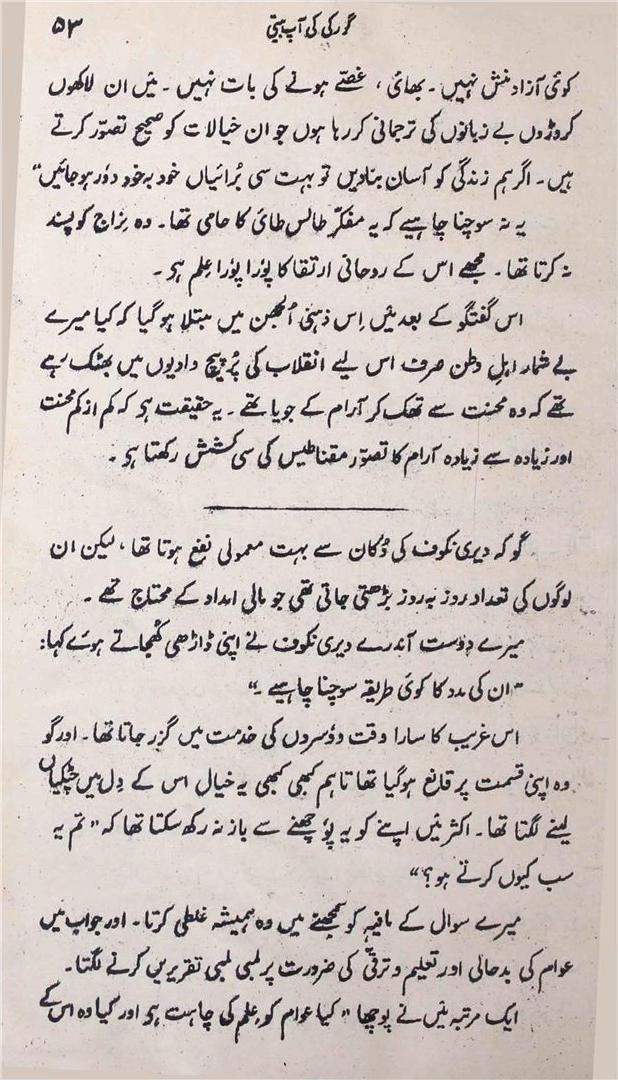 گورکی کی آپ بیتی
۵۳
کوئی آزاد منش نہیں ۔ بھائی ، غصّے ہونے کی بات نہیں ۔ میں ان لاکھوں
کروڑوں بے زبانوں کی ترجمانی کر رہا ہوں جو ان خیالات کو صحیح تصوّر کرتے
ہیں ۔ اگر ہم زندگی کو آسان بنا دیں تو بہت سی بُرائیاں خود بہ خود دوٗر ہو جائیں“
یہ نہ سوچنا چاہیے کہ یہ مفکّر طالس طائی کا حامی تھا۔ وہ نِراج کو پسند
نہ کرتا تھا۔ مجھے اس کے روحانی ارتقا کا پوٗرا پوٗرا عِلم ہو ۔
اس گفتگو کے بعد میں اِس ذہنی اُلجھن میں مبتلا ہو گیا کہ کیا میرے
بے شمار اہلِ وطن صرف اس لیے انقلاب کی پُر پیچ وادیوں میں بھٹک رہے
تھے کہ وہ محنت سے تھک کر آرام کے جویا تھے ۔ یہ حقیقت ہو کہ کم از کم محنت
اور زیادہ سے زیادہ آرام کا تصوّر مقناطیس کی سی کشش رکھتا ہو ۔
گو کہ دیری نکوف کی دُکان سے بہت معمولی نفع ہوتا تھا ، لیکن ان
لوگوں کی تعداد روز بہ روز بڑھتی جاتی تھی جو مالی امداد کے محتاج تھے ۔
میرے دوست آندرے دیری نکوف نے اپنی ڈاڑھی کھُجاتے ہوئے کہا :
”ان کی مدد کا کوئی طریقہ سوچنا چاہیے ۔“
اس غریب کا سارا وقت دوٗسروں کی خدمت میں گزر جاتا تھا ۔ اور گو
وہ اپنی قسمت پر قانع ہو گیا تھا تاہم کبھی کبھی یہ خیال اس کے دِل میں چٹکیاں
لینے لگتا تھا۔ اکثر میں اپنے کو یہ پوٗچھنے سے باز نہ رکھ سکتا تھا کہ ” تم یہ
سب کیوں کرتے ہو ؟ “
میرے سوال کے مافیہ کو سمجھنے میں وہ ہمیشہ غلطی کرتا ۔ اور جواب میں
عوام کی بدحالی اور تعلیم و ترقی کی ضرورت پر لمبی لمبی تقریریں کرنے لگتا۔
ایک مرتبہ میں نے پوچھا ” کیا عوام کو عِلم کی چاہت ہو اور کیا وہ اس کے